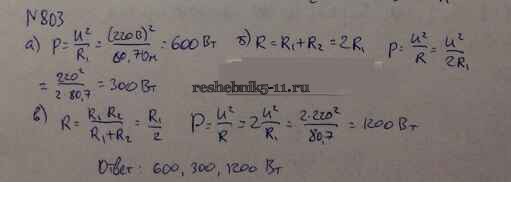 N803
а) P = U²/R₁ = (220В)²/80,7Ом = 600 Вт б) R = R₁ + R₂ = 2R₁ P = U²/R = U²/2R₁
= 220²/2·80,7 = 300 Вт
reshebnik5-11.ru
в) R = R₁ R₂/R₁+R₂ = R₁/2 P = U²/R = 2U²/R₁ = 2·220²/80,7 = 1200 Вт
Ответ: 600, 300, 1200 Вт